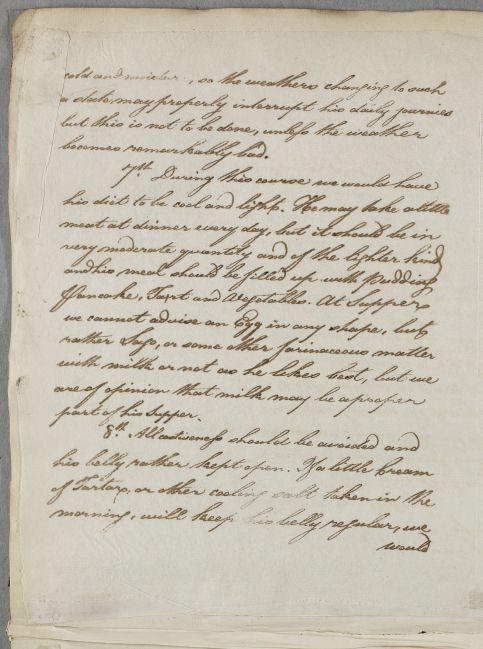 cold and moister, so the weathers changing to such
a state, may properly interrupt his daily journies
but this is not to be done, unless the weather
becomes remarkably bad.
7th During this course we would have
his diet to be cool and light. He may take a little
meat at dinner every day, but it should be in
very moderate quantity and of the lighter kind
and his meal should be filled up with Pudding
Pancake, Tart and Vegetables. At Supper
we cannot advise an Egg in any shape, but
rather Sago, or some other farinaceous matter
with milk or not as he likes best, but we
are of opinion that milk may be a proper
part of his Supper.
8th. All costiveness should be avoided and
his belly rather kept open. If a little Cream
of Tartar, or other cooling salt taken in the
morning, will keep his belly regular, we
would